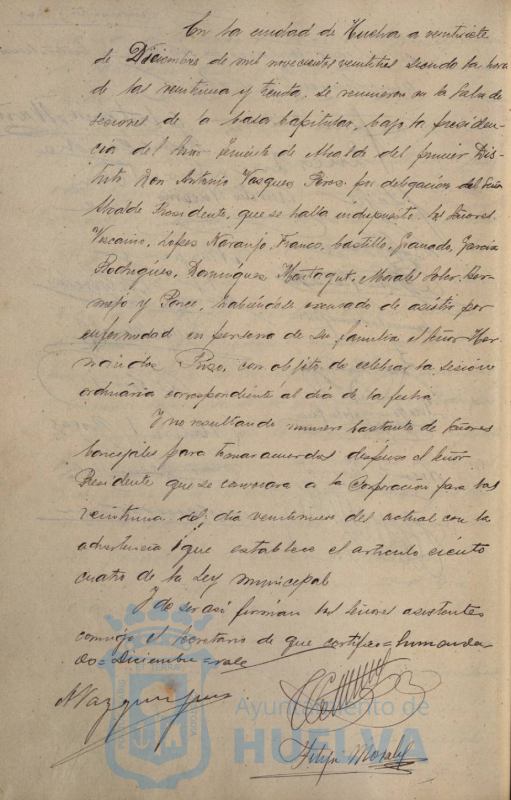 En la ciudad de Huelva a veintisiete
de Diciembre de mil novecientos veintitres siendo la hora
de las veintiuna y treinta, se reunieron en la Sala de
sesiones de la Casa Capitular, bajo la presiden-
cia del Señor Teniente de Alcalde del primer Dis-
trito Don Antonio Vazquez Perez por delegación del Señor
Alcalde Presidente, que se halla indispuesto, los Señores
Vizcaino, Lopez Naranjo, Franco, Castillo, Granado, Garcia
Rodriguez, Dominguez, Morales Soler, Ber-
mejo y Ponce, habiéndose excusado de asistir por
enfermedad en persona de su familia el Señor Her-
nandez Pinzo, con objeto de celebrar la sesión
ordinária correspondiente al dia de la fecha.
Y no resultando número bastante de Señores
Concejales para tomar acuerdos dispuso el Señor
Presidente que se convocara a la Corporación para las
veintiuna del dia veintinueve del actual con la
advertencia que establece el artículo ciento
cuatro de la Ley municipal
Y de ser así firman los Señores asistentes
conmigo el Secretario de que certifico =
do = Diciembre = vale
A Vazquez Perez
Felipe Morales
Ayuntamiento de
HUELVA